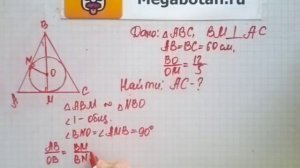 Megabotan.ru
Дано: △ABC, BM⊥AC
AB=BC=60см,
BO/OM = 12/5
Найти: AC-?
B
N
O
1
A
M
C
△ABM ∾ △NBO
∠1-общ.
∠BNO=∠AMB=90°
AB/OB = BM/BN